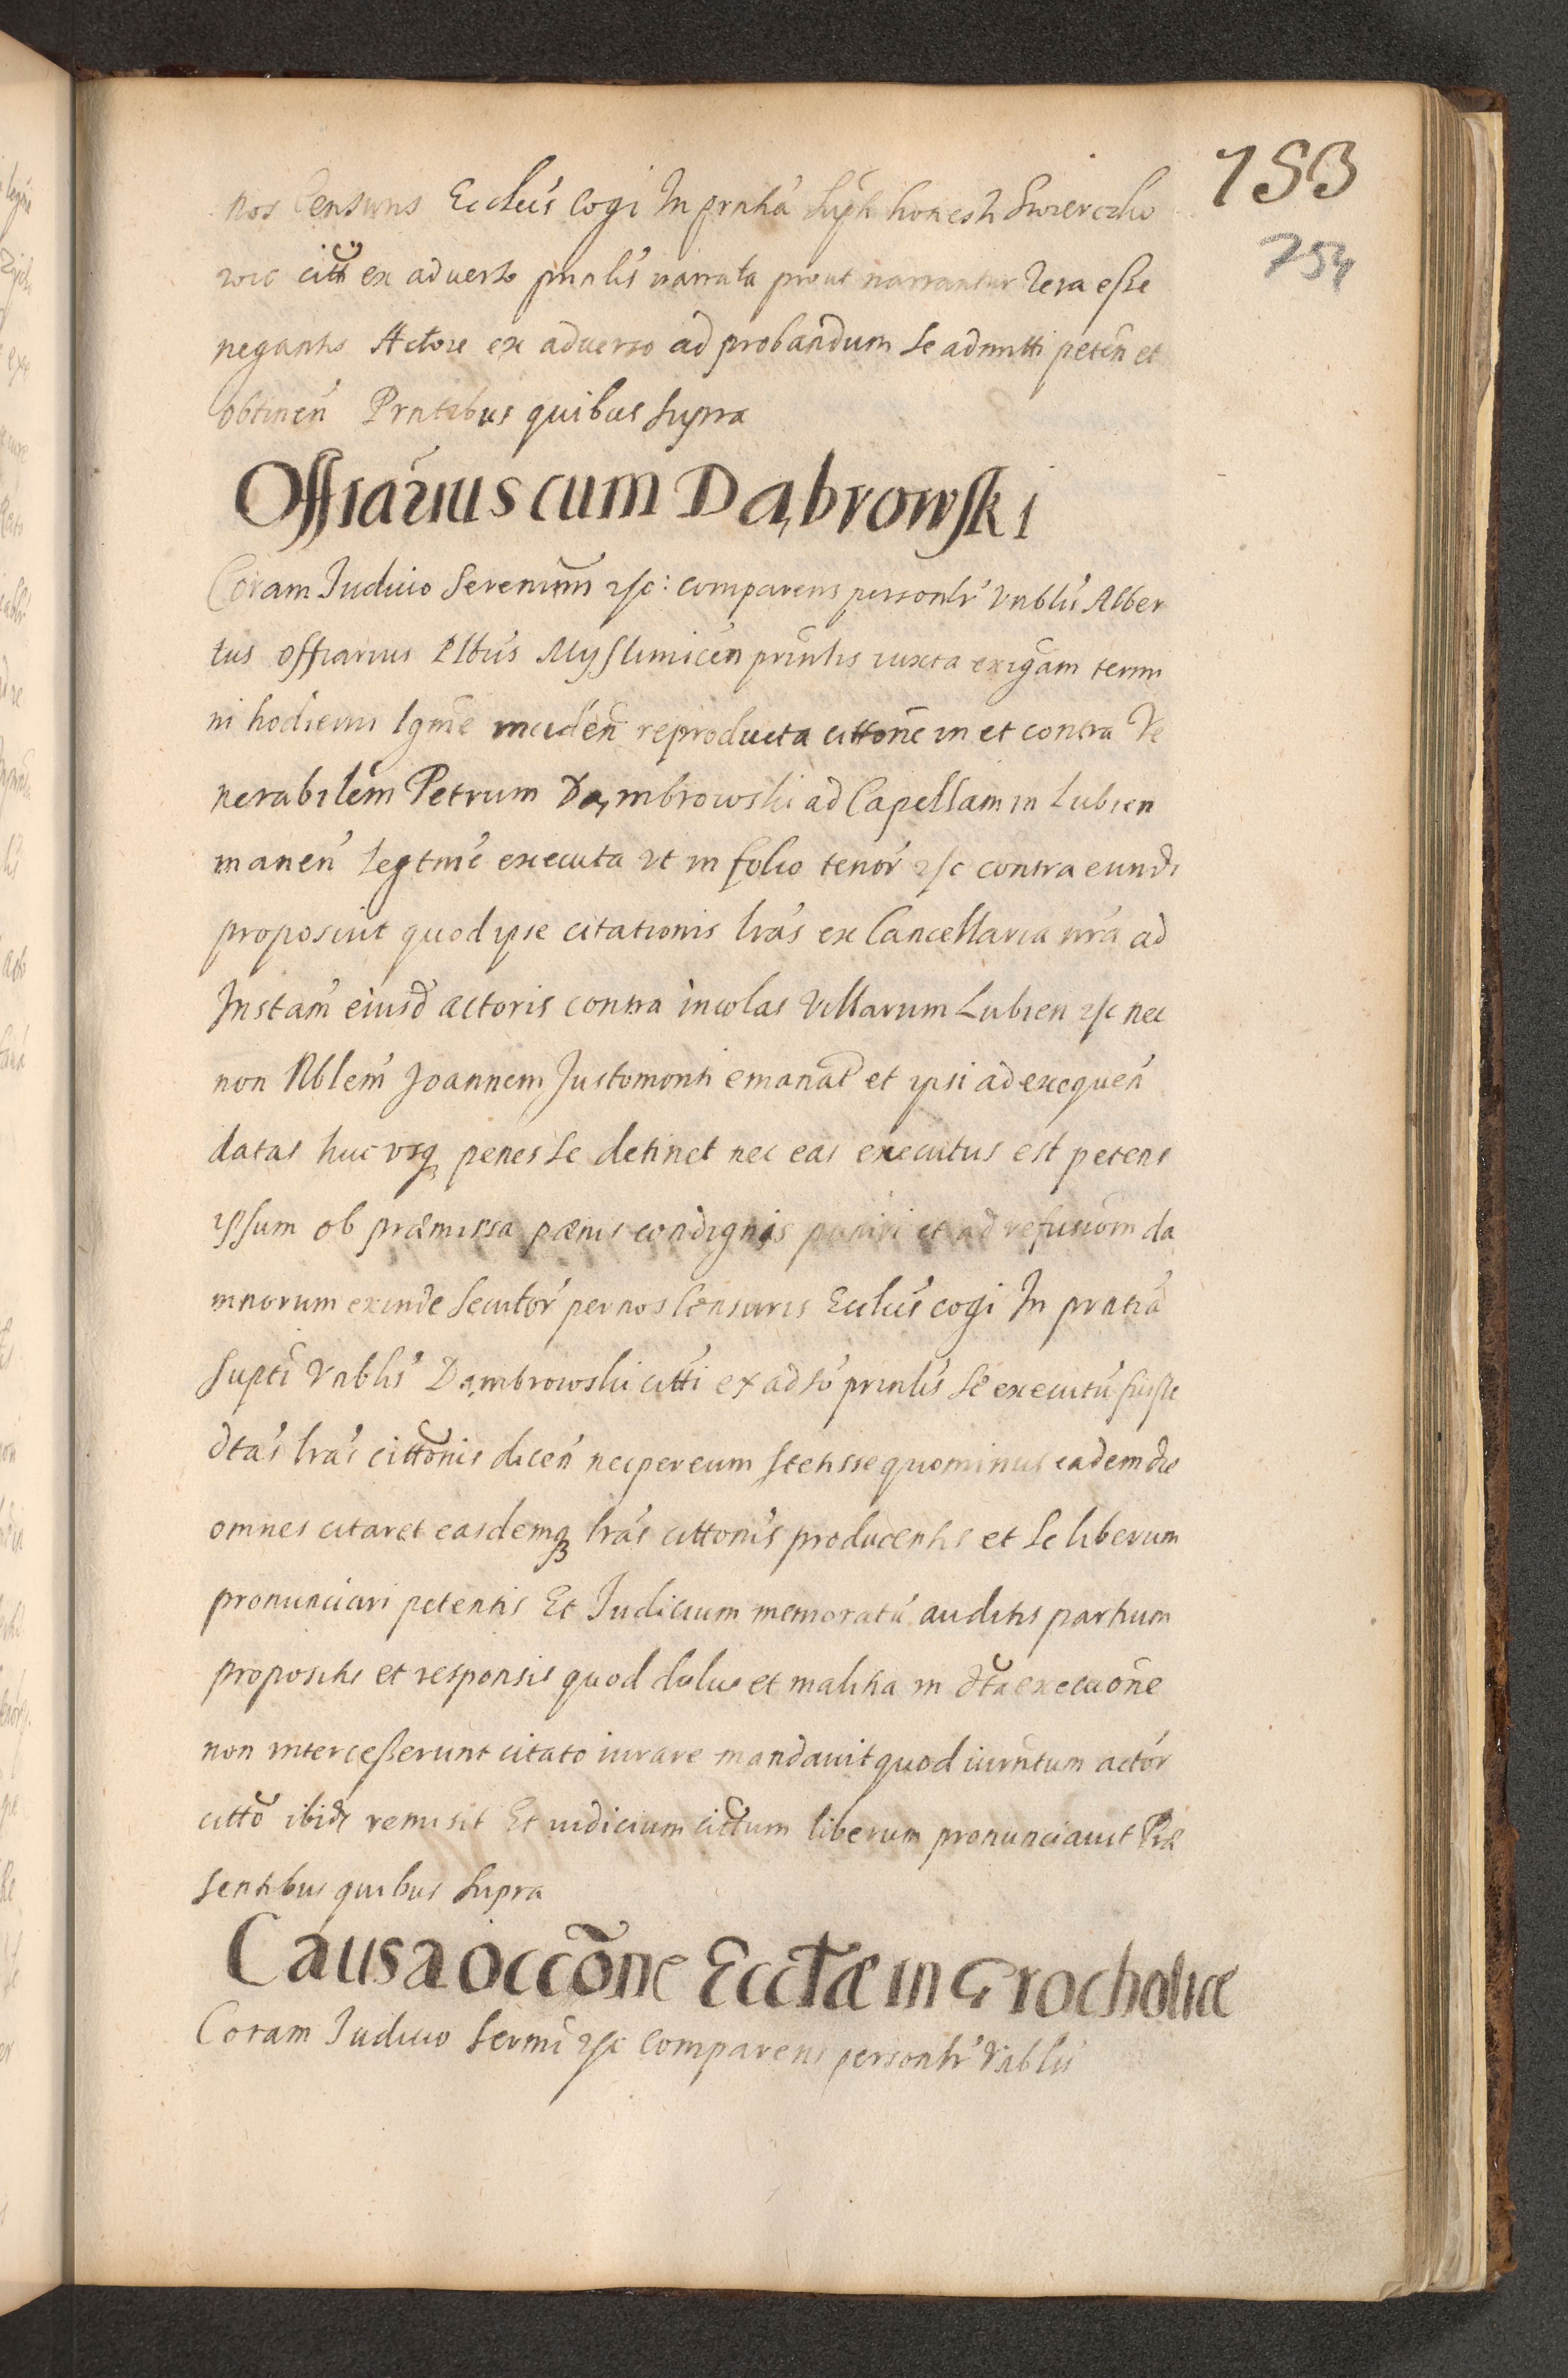 153
754
nos Censuris Ecclis cogi In prntia supti honesti Swierczko
wic citti ex aduerso prnlis narrata prout narrantur vera esse
negantis Actore ex aduerso ad probandum se admitti peten et
obtinen Prntibus quibus supra
Offiarius cum Dąbrowski
Coram Iudicio Serenimi etc: comparens personlr Vnblis Alber
tus offiarius Pltus Myslimicen prinlis iuxta exigam termi
ni hodierni lgme inciden reproducta cittone in et contra Ve
nerabilem Petrum Dąmbrowski ad Capellam in Lubien
manen legtme executa vt in folio tenor etc contra eund
proposuit quod ipse citationis lras ex Cancellaria nra ad
Instam eiusd actoris contra incolas Villarum Lubien etc nec
non Nblem Joannem Justomonti emanat et ipsi ad exequen
datas huc vsq penes se detinet nec eas executus est petens
ipsum ob præmissa pænis condignis puniri et ad refusiom da
mnorum exinde secutor per nos Censuris Ecclis cogi In prntia
supti Vnblis Dąmbrowski citti ex adso prinlis se executu fuisse
dtas lras cittonis dicen nec per eum stetisse quominus eadem die
omnes citaret easdemq lras cittonis producentis et se liberum
pronunciari petentis Et Iudicium memoratu auditis partium
propositis et responsis quod dolus et malitia in dta execuone
non intercesserunt citato iurare mandauit quod iurntum actor
citto ibid remisit Et iudicium cittum liberum pronunciauit Præ
sentibus quibus supra
Causa occone Ecctæ in Grocholice
Coram Iudicio Sermi etc Comparens personlr Vnblis